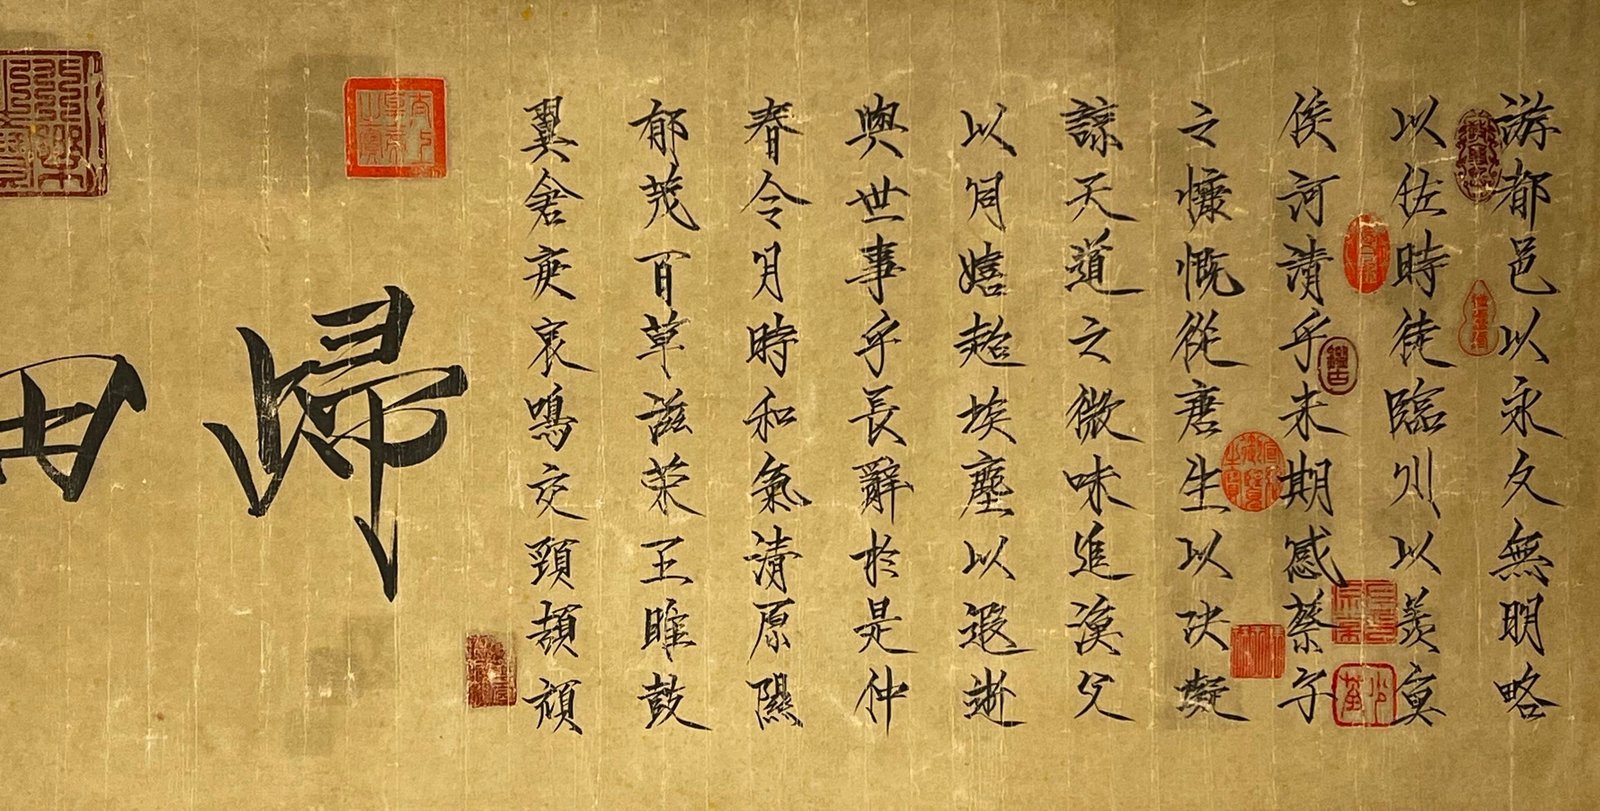 游都邑以永久無明略
以佐時徒臨川以羨魚
俟河清乎未期感蔡子
之慷慨從唐生以決疑
諒天道之微昧追漁父
以同嬉超埃塵以遐逝
與世事乎長辭於是仲
春令月時和氣清原隰
郁茂百草滋榮王雎鼓
翼倉庚哀鳴交頸頡頏
歸田